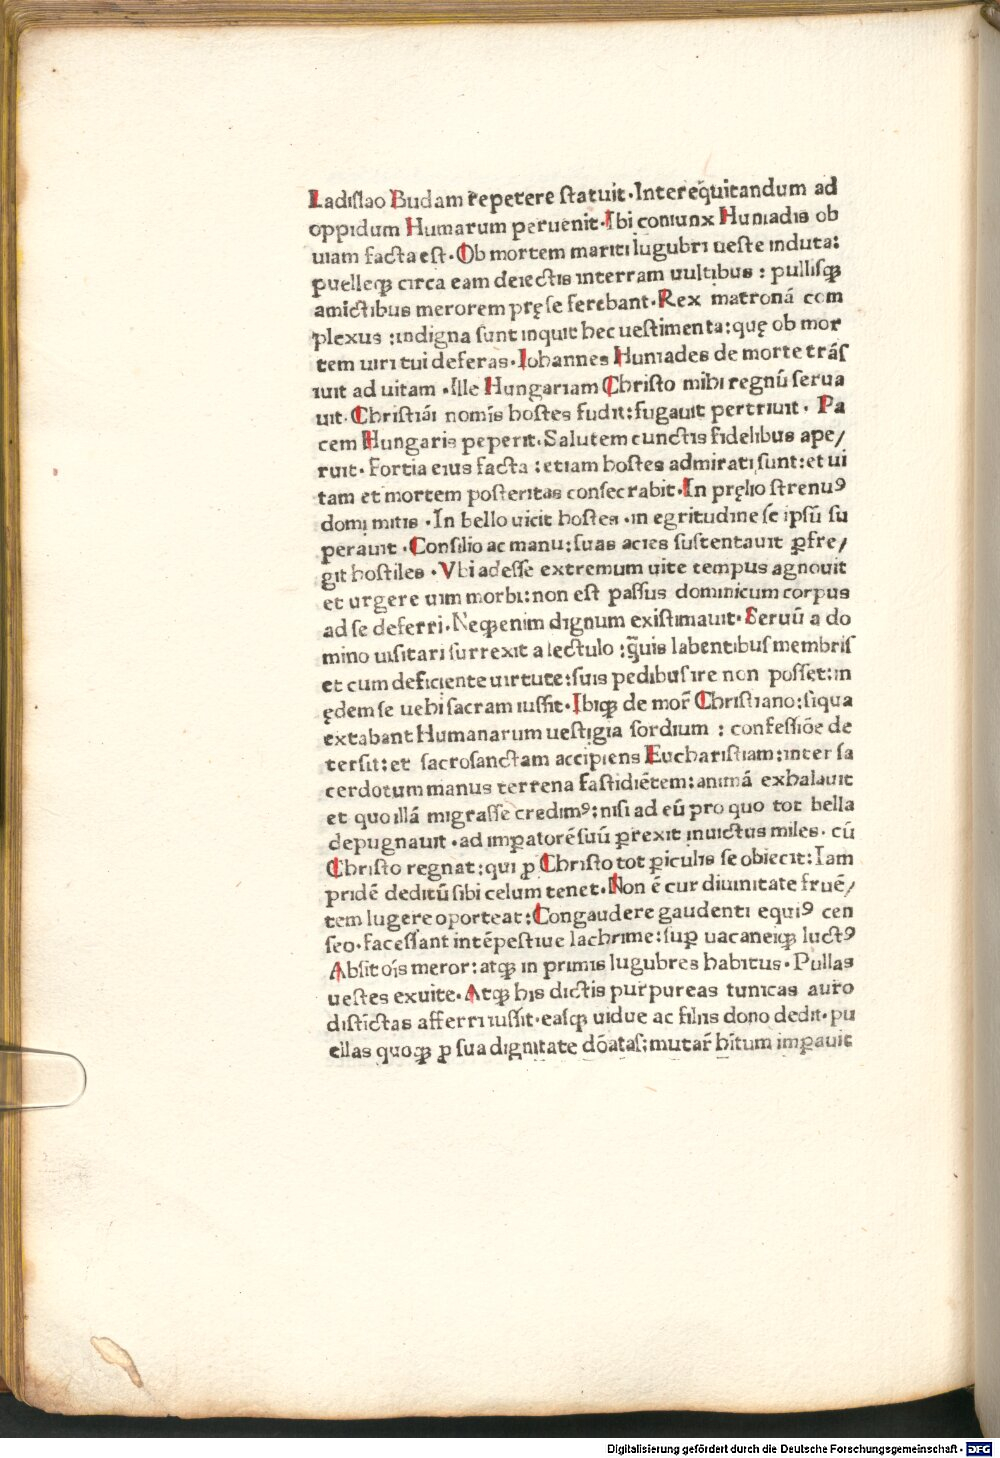 Ladiſlao Budam repetere ſtatuit·Intereq̃uitandum ad
oppidum Humarum peruenit·Ibi coniunx Huniadis ob
uiam facta eſt·Ob mortem mariti lugubri ueſte induta:
puelleqꝫ circa eam deiectis interram uultibus : pulliſqꝫ
amictibus merorem pręſe ferebant·Rex matronā com
plexus :indigna ſunt inquit hec ueſtimenta:quę ob mor
tem uiri tui deferas·Iohannes Huniades de morte trāſ
iuit ad uitam ·Ille Hungariam Chriſto mihi regnū ſerua
uit·Chriſtiāi nomis̄ hoſtes fudit:fugauit pertriuit· Pa
cem Hungaris peperit·Salutem cunctis fidelibus ape/
ruit·Fortia eius facta :etiam hoſtes admirati ſunt:et ui
tam et mortem poſteritas conſecrabit·In pręlio ſtrenuꝰ
domi mitis ·In bello uicit hoſtes ·in egritudine ſe ipſū ſu
perauit ·Conſilio ac manu:ſuas acies ſuſtentauit ꝑfre/
git hoſtiles ·Vbi adeſſe extremum uite tempus agnouit
et urgere uim morbi:non eſt paſſus dominicum corpus
ad ſe deferri·Neqꝫ enim dignum exiſtimauit·Seruū a do
mino uiſitari ſurrexit a lectulo :q̃uis labentibuſ membriſ
et cum deficiente uirtute:ſuis pedibuſ ire non poſſet:in
ędem ſe uehi ſacram iuſſit·Ibiqꝫ de mor̄ Chriſtiano:ſiqua
extabant Humanarum ueſtigia ſordium : confeſſiōe de
terſit:et ſacroſanctam accipiens Euchariſtiam:inter ſa
cerdotum manus terrena faſtidiētem:animā exhalauit
et quo illā migraſſe credimꝰ:niſi ad eū pro quo tot bella
depugnauit ·ad imꝑatorē ſuū ꝑrexit inuictus miles· cū
Chriſto regnat:qui ꝑ Chriſto tot ꝑiculis ſe obiecit:Iam
pridē deditū ſibi celum tenet·Non ē cur diuinitate fruē/
tem lugere oporteat:Congaudere gaudenti equiꝰ cen
ſeo·Faceſſant intēpeſtiue lachrime:ſuꝑ uacaneiqꝫ luctꝰ
Abſit oīs meror:atqꝫ in primis lugubres habitus·Pullas
ueſtes exuite·Atqꝫ his dictis purpureas tunicas auro
diſtīctas afferri iuſſit·eaſqꝫ uidue ac filiis dono dedit·pu
ellas quoqꝫ ꝑ ſua dignitate dōataſ:mutar̄ hītum imꝑauit
Digitalisierung gefördert durch die Deutsche Forschungsgemeinschaft - DFG